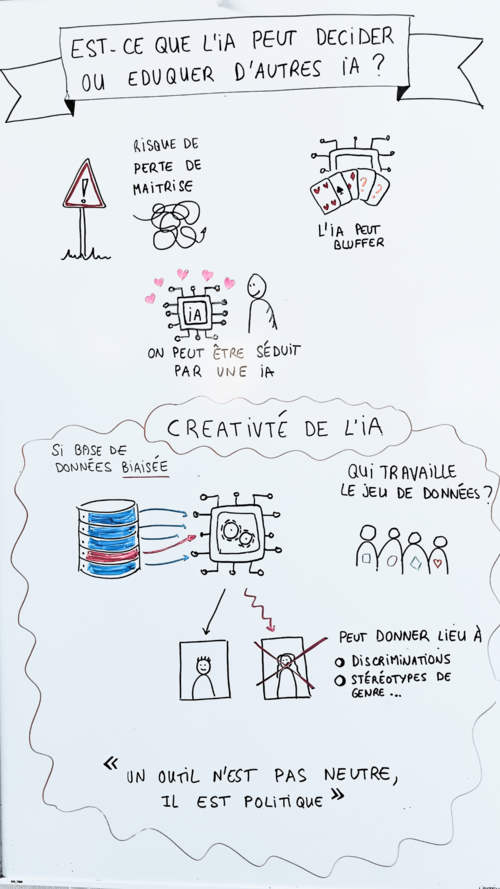 EST-CE QUE L'IA PEUT DECIDER
OU EDUQUER D'AUTRES IA ?
RISQUE DE
PERTE DE
MAITRISE
!
? ?
L'IA PEUT
BLUFFER
IA
ON PEUT ÊTRE SÉDUIT
PAR UNE IA
CREATIVTÉ DE L'IA
SI BASE DE
DONNÉES BIAISÉE
QUI TRAVAILLE
LE JEU DE DONNÉES ?
PEUT DONNER LIEU À
DISCRIMINATIONS
STÉRÉOTYPES DE
GENRE ...
« UN OUTIL N'EST PAS NEUTRE,
IL EST POLITIQUE »